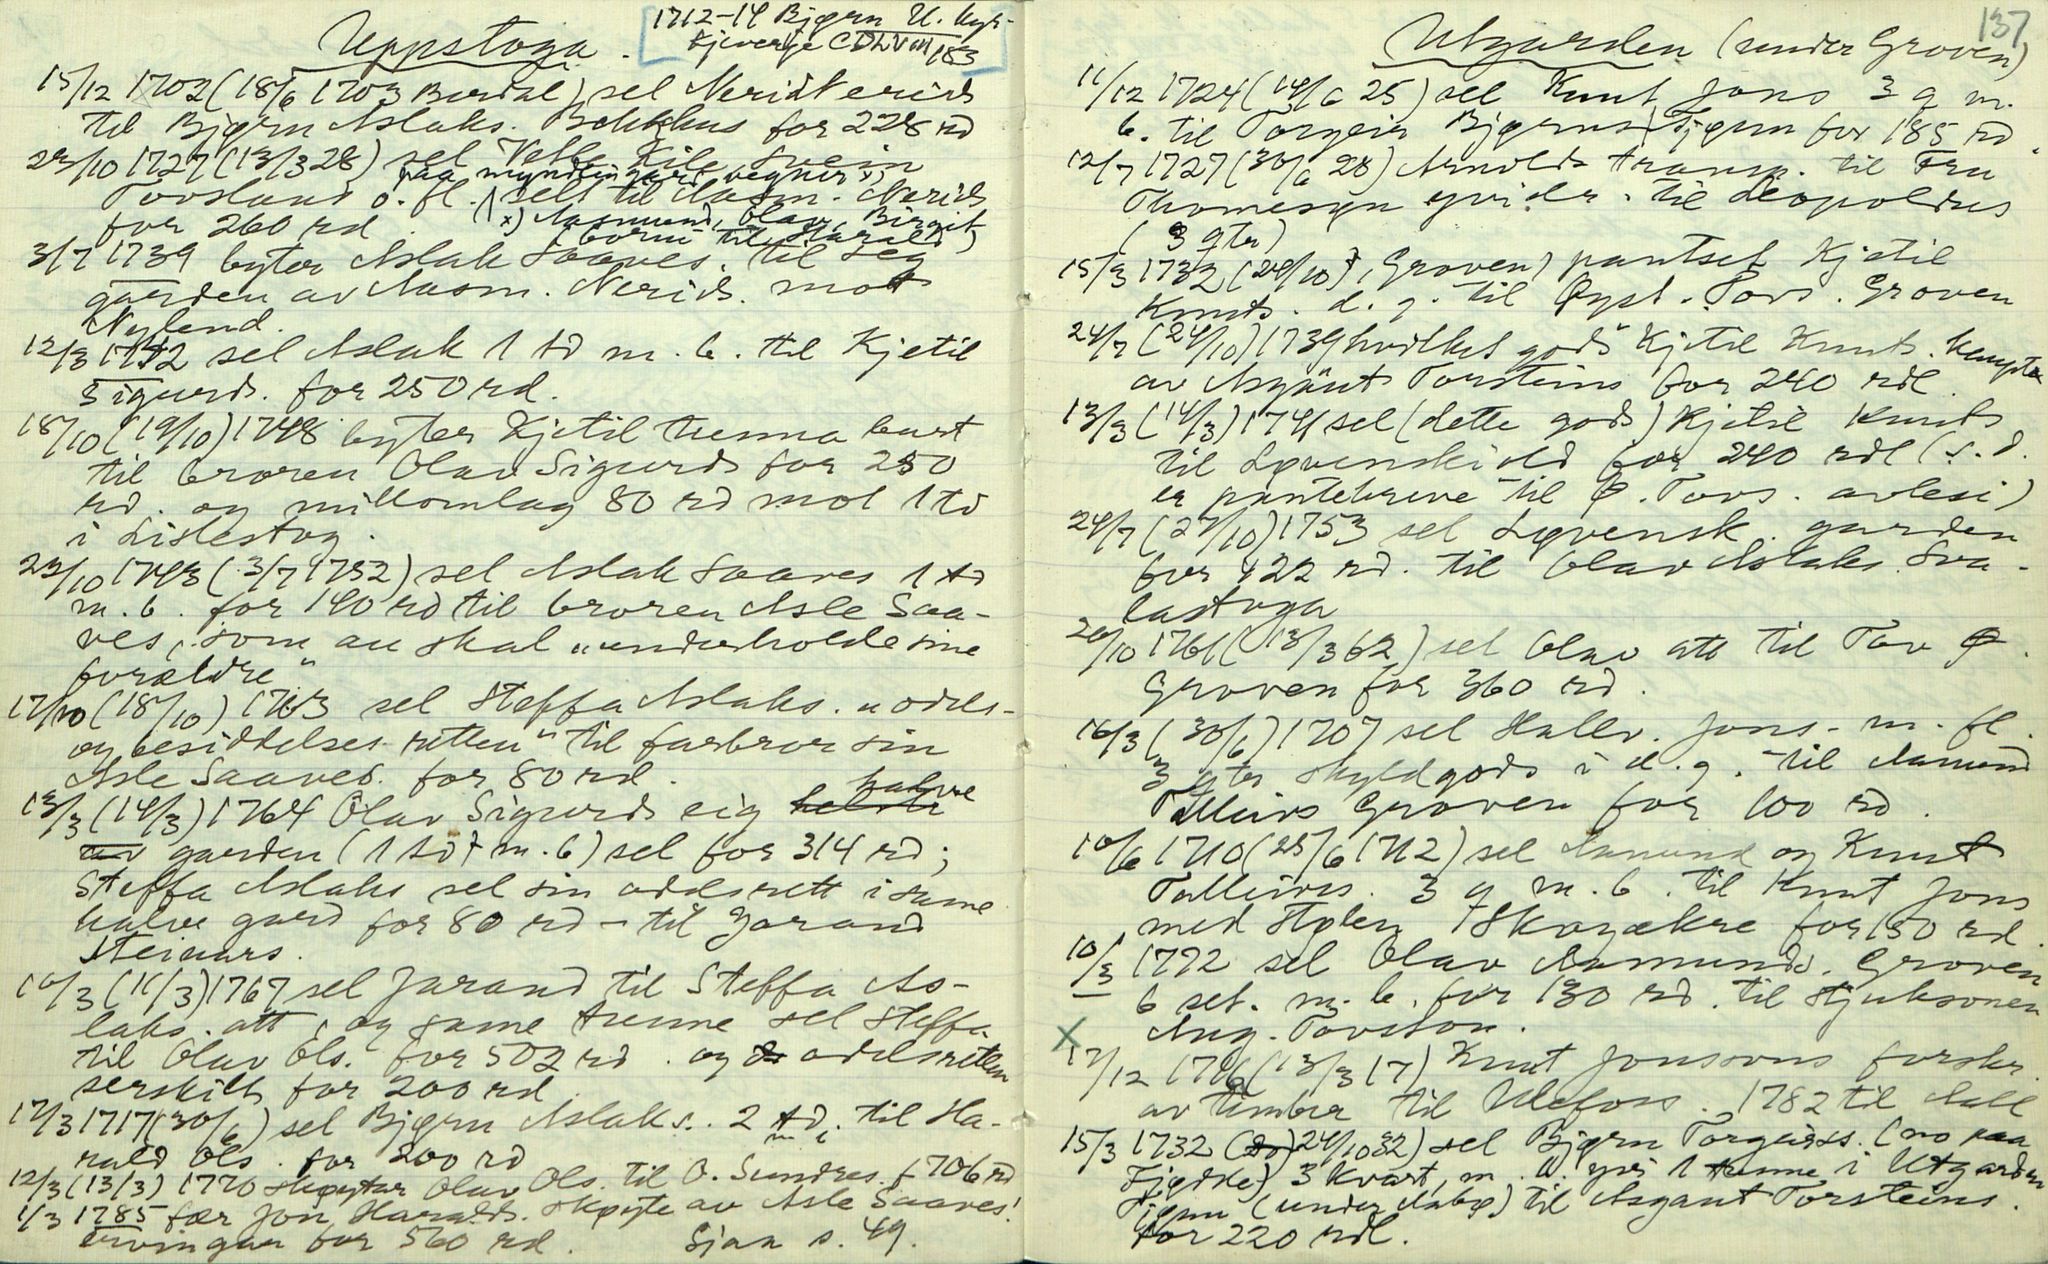 Uppstoga.
[1712-14 Bjørn U. Kyr-
kjeverje CDLVIII/183]
15/12 1702 (18/6 1703 Burdal) sel Nerid Nerids
til Bjørn Aslaks. Bokkhus for 228 rd
23/10 1727 (13/3 28) sel Vetle Kile, Svein
paa myndlingars vegner x)
Tovsland o. fl. selt til Aasm. Nerids
for 260 rd (x) Aasmund, Olav, Birgit
borni til Harald)
3/7 1739 byter Aslak Saaves. til seg
garden av Aasm. Nerids. mot
Nylend.
12/3 1742 sel Aslak 1 td m. b. til Kjetil
Sigurds. for 250 rd.
18/10 (19/10) 1748 byter Kjetil tunna burt
til broren Olav Sigurds for 250
rd. og millomlag 80 rd mot 1 td
i Lislestog.
23/10 1743 (3/7 1752) sel Aslak Saaves 1 td
m. b. for 140 rd til broren Asle Saa-
ves, som au skal "underholde sine
forældre"
17/10 (18/10) 1763 sel Steffa Aslaks. "odels-
og besiddelses-retten" til farbror sin
Asle Saaves. for 80 rd.
13/3 (14/3) 1764 Olav Sigurds eig halve
garden (1 td + m. b) sel for 314 rd;
Steffa Aslaks sel sin odelsrett i same
halve gard for 80 rd - til Jorand
Steinars.
10/3 (11/3) 1767 sel Jorand til Steffa As-
laks. att, og same tunne sel Steffa
til Olav Ols. for 502 rd. og odelsretten
serskilt for 200 rd
17/3 1717 (30/6) sel Bjørn Aslaks. 2 td. til Ha-
rald Ols. for 200 rd
12/3 (13/3) 1770 skøyter Olav Ols. til O. Sundres. f 706 rd
1/3 1785 fær Jon Haralds. skøyte av Asle Saaves'
ervingar for 560 rd. Sjaa s. 49.
137
Utgarden (under Groven)
11/12 1724 (14/6 25) sel Knut Jons 3 q m.
b. til Torgeir Bjørns Tjønn for 185 rd.
12/7 1727 (30/6 28) Arnolds transp. til Fru
Thomesyn vider. til Leopoldus
(3 qtr)
15/3 1732 (24/10), Groven, pantset Kjetil
Knuts. d. g. til Øyst. Tovs. Groven
24/7 (24/10) 1739 hvilket gods Kjetil Knuts. kaupte
av Asgaut Torsteins for 240 rdl
13/3 (14/3) 1741 sel (dette gods) Kjetil Knuts
til Løvenskiold for 240 rdl (s. d.
er pantebreve til Ø. Tovs. avlesi)
24/7 (27/10) 1753 sel Løvensk. garden
for 422 rd. til Olav Aslaks. Sva-
lastoga
20/10 1761 (13/3 62) sel Olav att til Tov Ø.
Groven for 360 rd.
16/3 (30/6) 1707 sel Hallv. Jons. m. fl.
3 qter skyldgods i d. g. til Aamund
Talleivs Groven for 100 rd.
10/6 1710 (25/6 1712) sel Aamund og Knut
Talleivs. 3 q m. b. til Knut Jons
med støler Skogekre for 150 rd.
10/3 1792 sel Olav Aamunds. Groven
6 set. m. b. for 130 rd. til stjuksonen
X Aug. Tovston.
17/12 1716 (13/3 17) Knut Jonssons forskr.
av timber til Ulefoss. 1782 til Aall
15/3 1732 (24/10 32) sel Bjørn Torgeirs. (no paa
Fjødle) 3 kvart. m. b. yvi 1 tunne i Utgarden
Tjønn (under Aabø) til Asgaut Torsteins.
for 220 rdl.